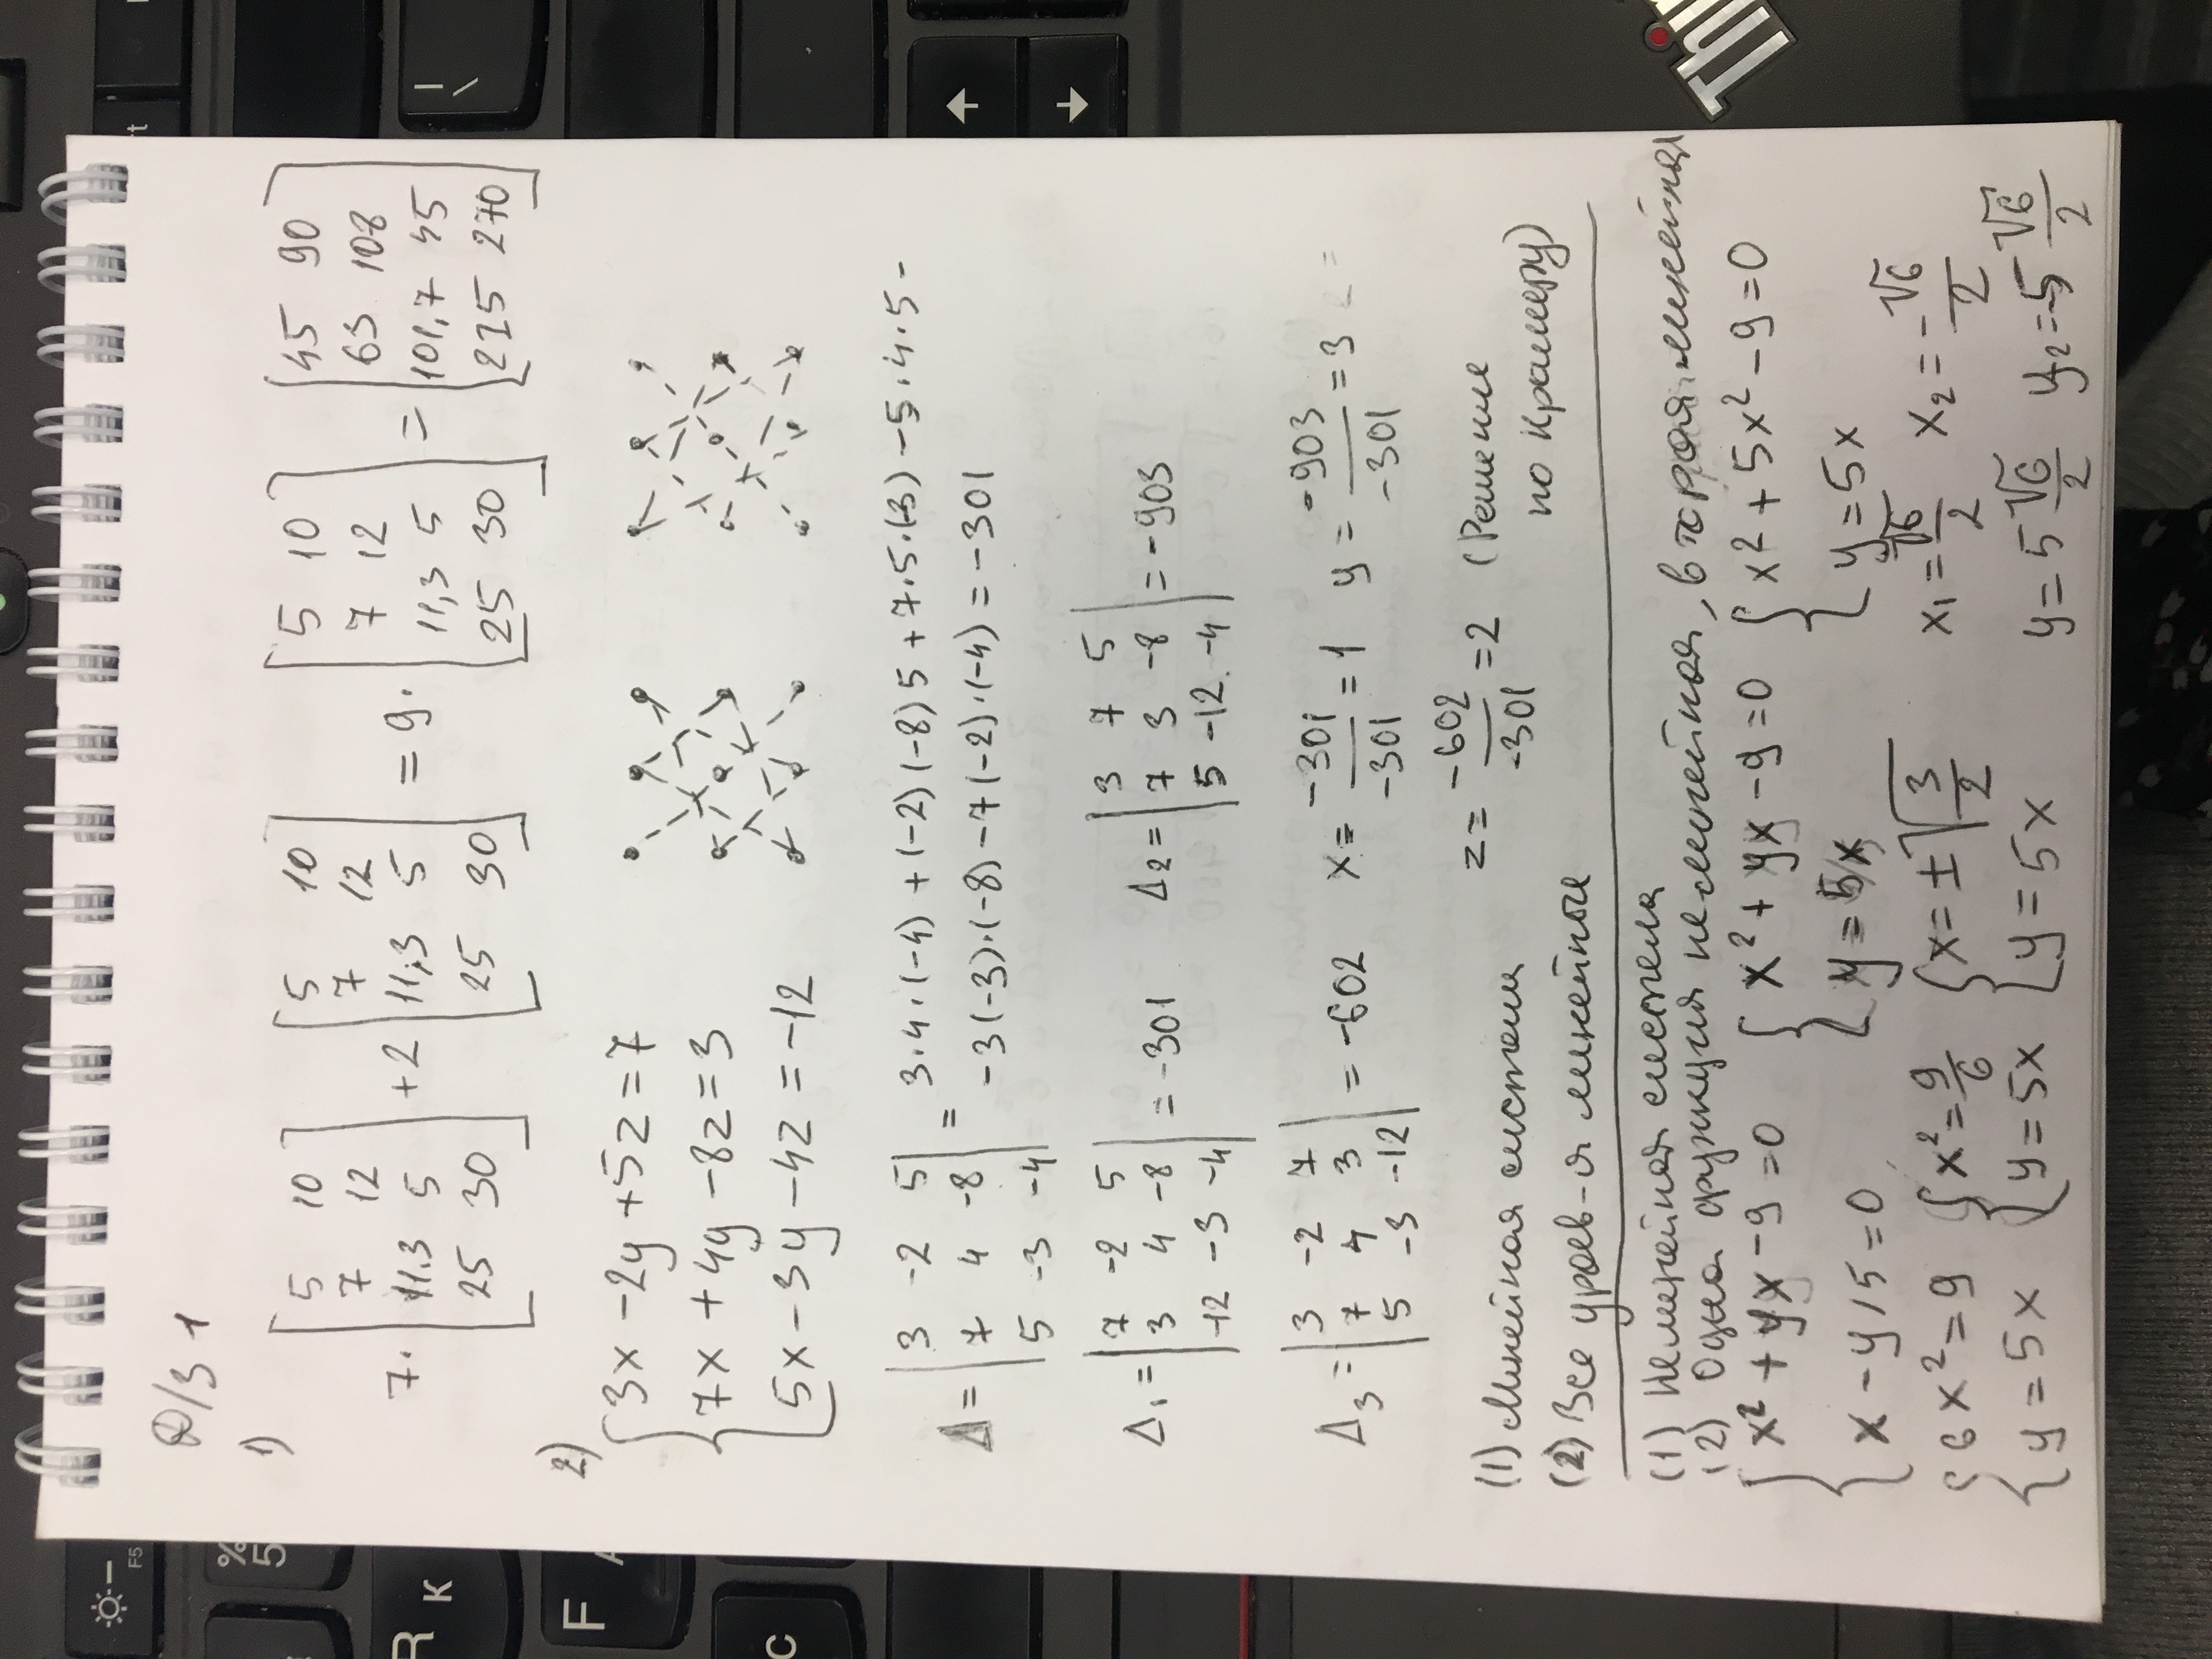 Д/З 1
1)
7·[5 10
7 12
11.3 5
25 30] + 2 [5 10
7 12
11,3 5
25 30] = 9·[5 10
7 12
11,3 5
25 30] = [45 90
63 108
101,7 45
225 270]
2)
{3x - 2y + 5z = 7
7x + 4y - 8z = 3
5x - 3y - 4z = -12
Δ = |3 -2 5
7 4 -8
5 -3 -4| = 3·4·(-4) + (-2)(-8)5 + 7·5·(-3) - 5·4·5 -
-3(-3)·(-8) - 7(-2)·(-4) = -301
Δ₁ = |7 -2 5
3 4 -8
-12 -3 -4| = -301 Δ₂ = |3 7 5
7 3 -8
5 -12 -4| = -903
Δ₃ = |3 -2 7
7 4 3
5 -3 -12| = -602 x = -301/-301 = 1 y = -903/-301 = 3 z =
z = -602/-301 = 2 (Решение
по Крамеру)
(1) Линейная система
(2) Все уравн-я линейные
(1) Нелинейная система
(2) Одна функция нелинейная, вторая линейная
{x² + yx - 9 = 0
x - y/5 = 0 {x² + yx - 9 = 0
y = 5x {x2 + 5x² - 9 = 0
y = 5x
{6x² = 9
y = 5x {x² = 9/6
y = 5x {x = ±√3/2
y = 5x x₁ = √6/2 x₂ = -√6/2
y = 5 √6/2 y₂ = -5 √6/2
| \
F5
% 5
R К
F
C